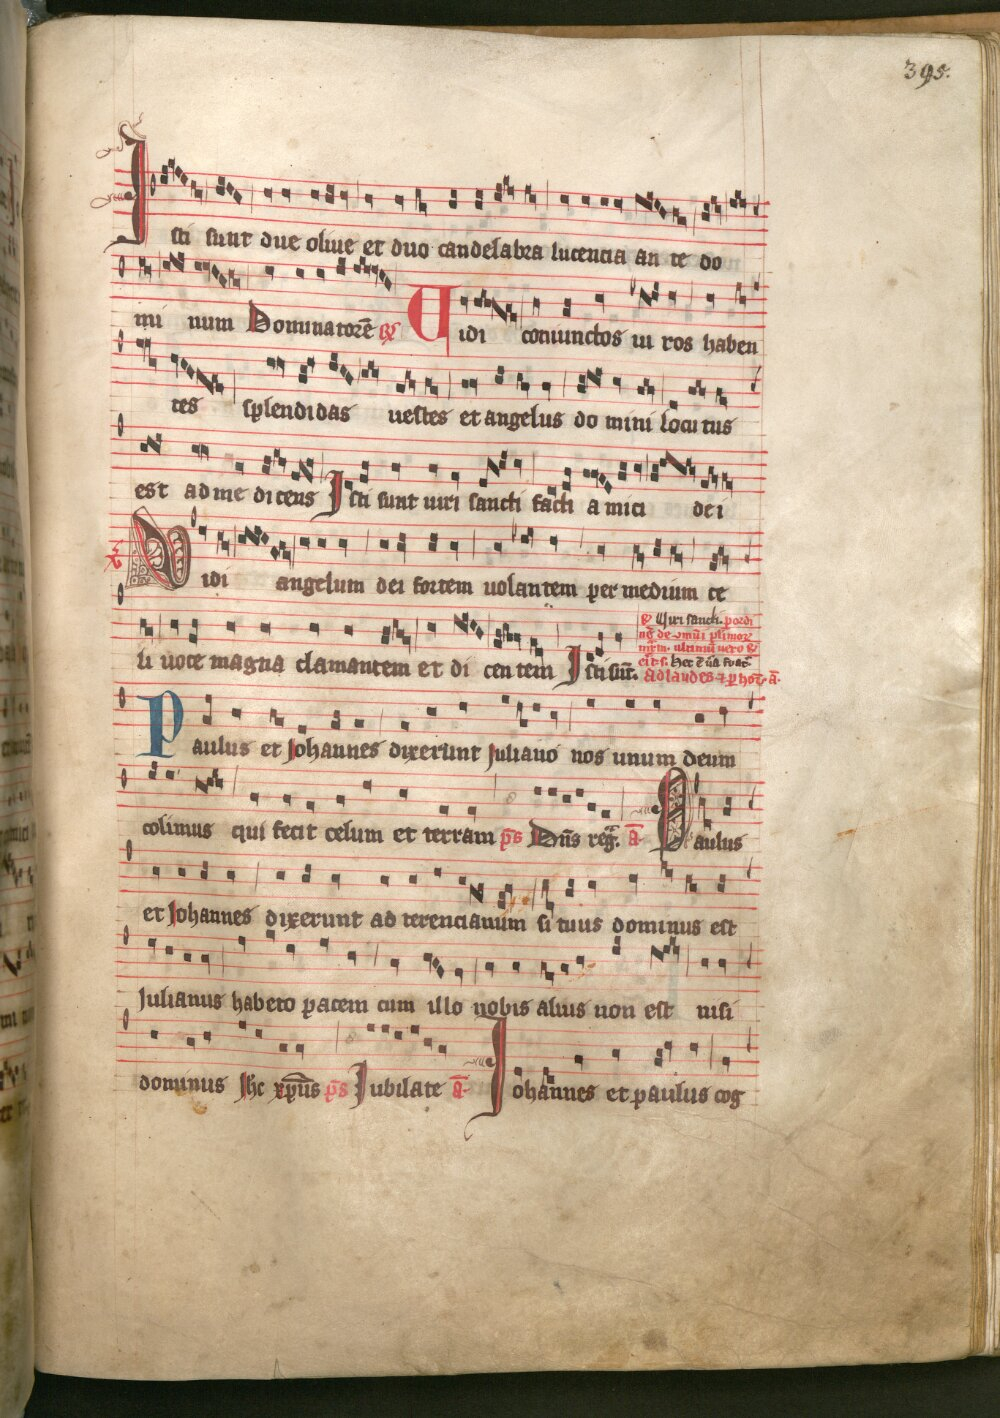 395.
Isti sunt due oliue et duo candelabra lucencia an te do
mi num Dominatorē R̃ Uidi coniunctos ui ros haben
tes splendidas uestes et angelus do mini locu tus
est ad me dicens Isti sunt uiri sancti facti a mici de i
Vidi angelum dei fortem uolantem per medium ce
li uoce magna clamantem et di cen tem Isti sūt.
Uiri sancti.
Ad laudes
Paulus et Johannes dixerunt Juliano nos unum deum
colimus qui fecit celum et terram p̄s Dn̄s reg̃. a̅ Paulus
et Johannes dixerunt ad terencianum si tuus dominus est
Julianus habeto pacem cum illo nobis alius non est nisi
dominus Jhc xp̄us p̄s Jubilate a̅ Johannes et paulus cog